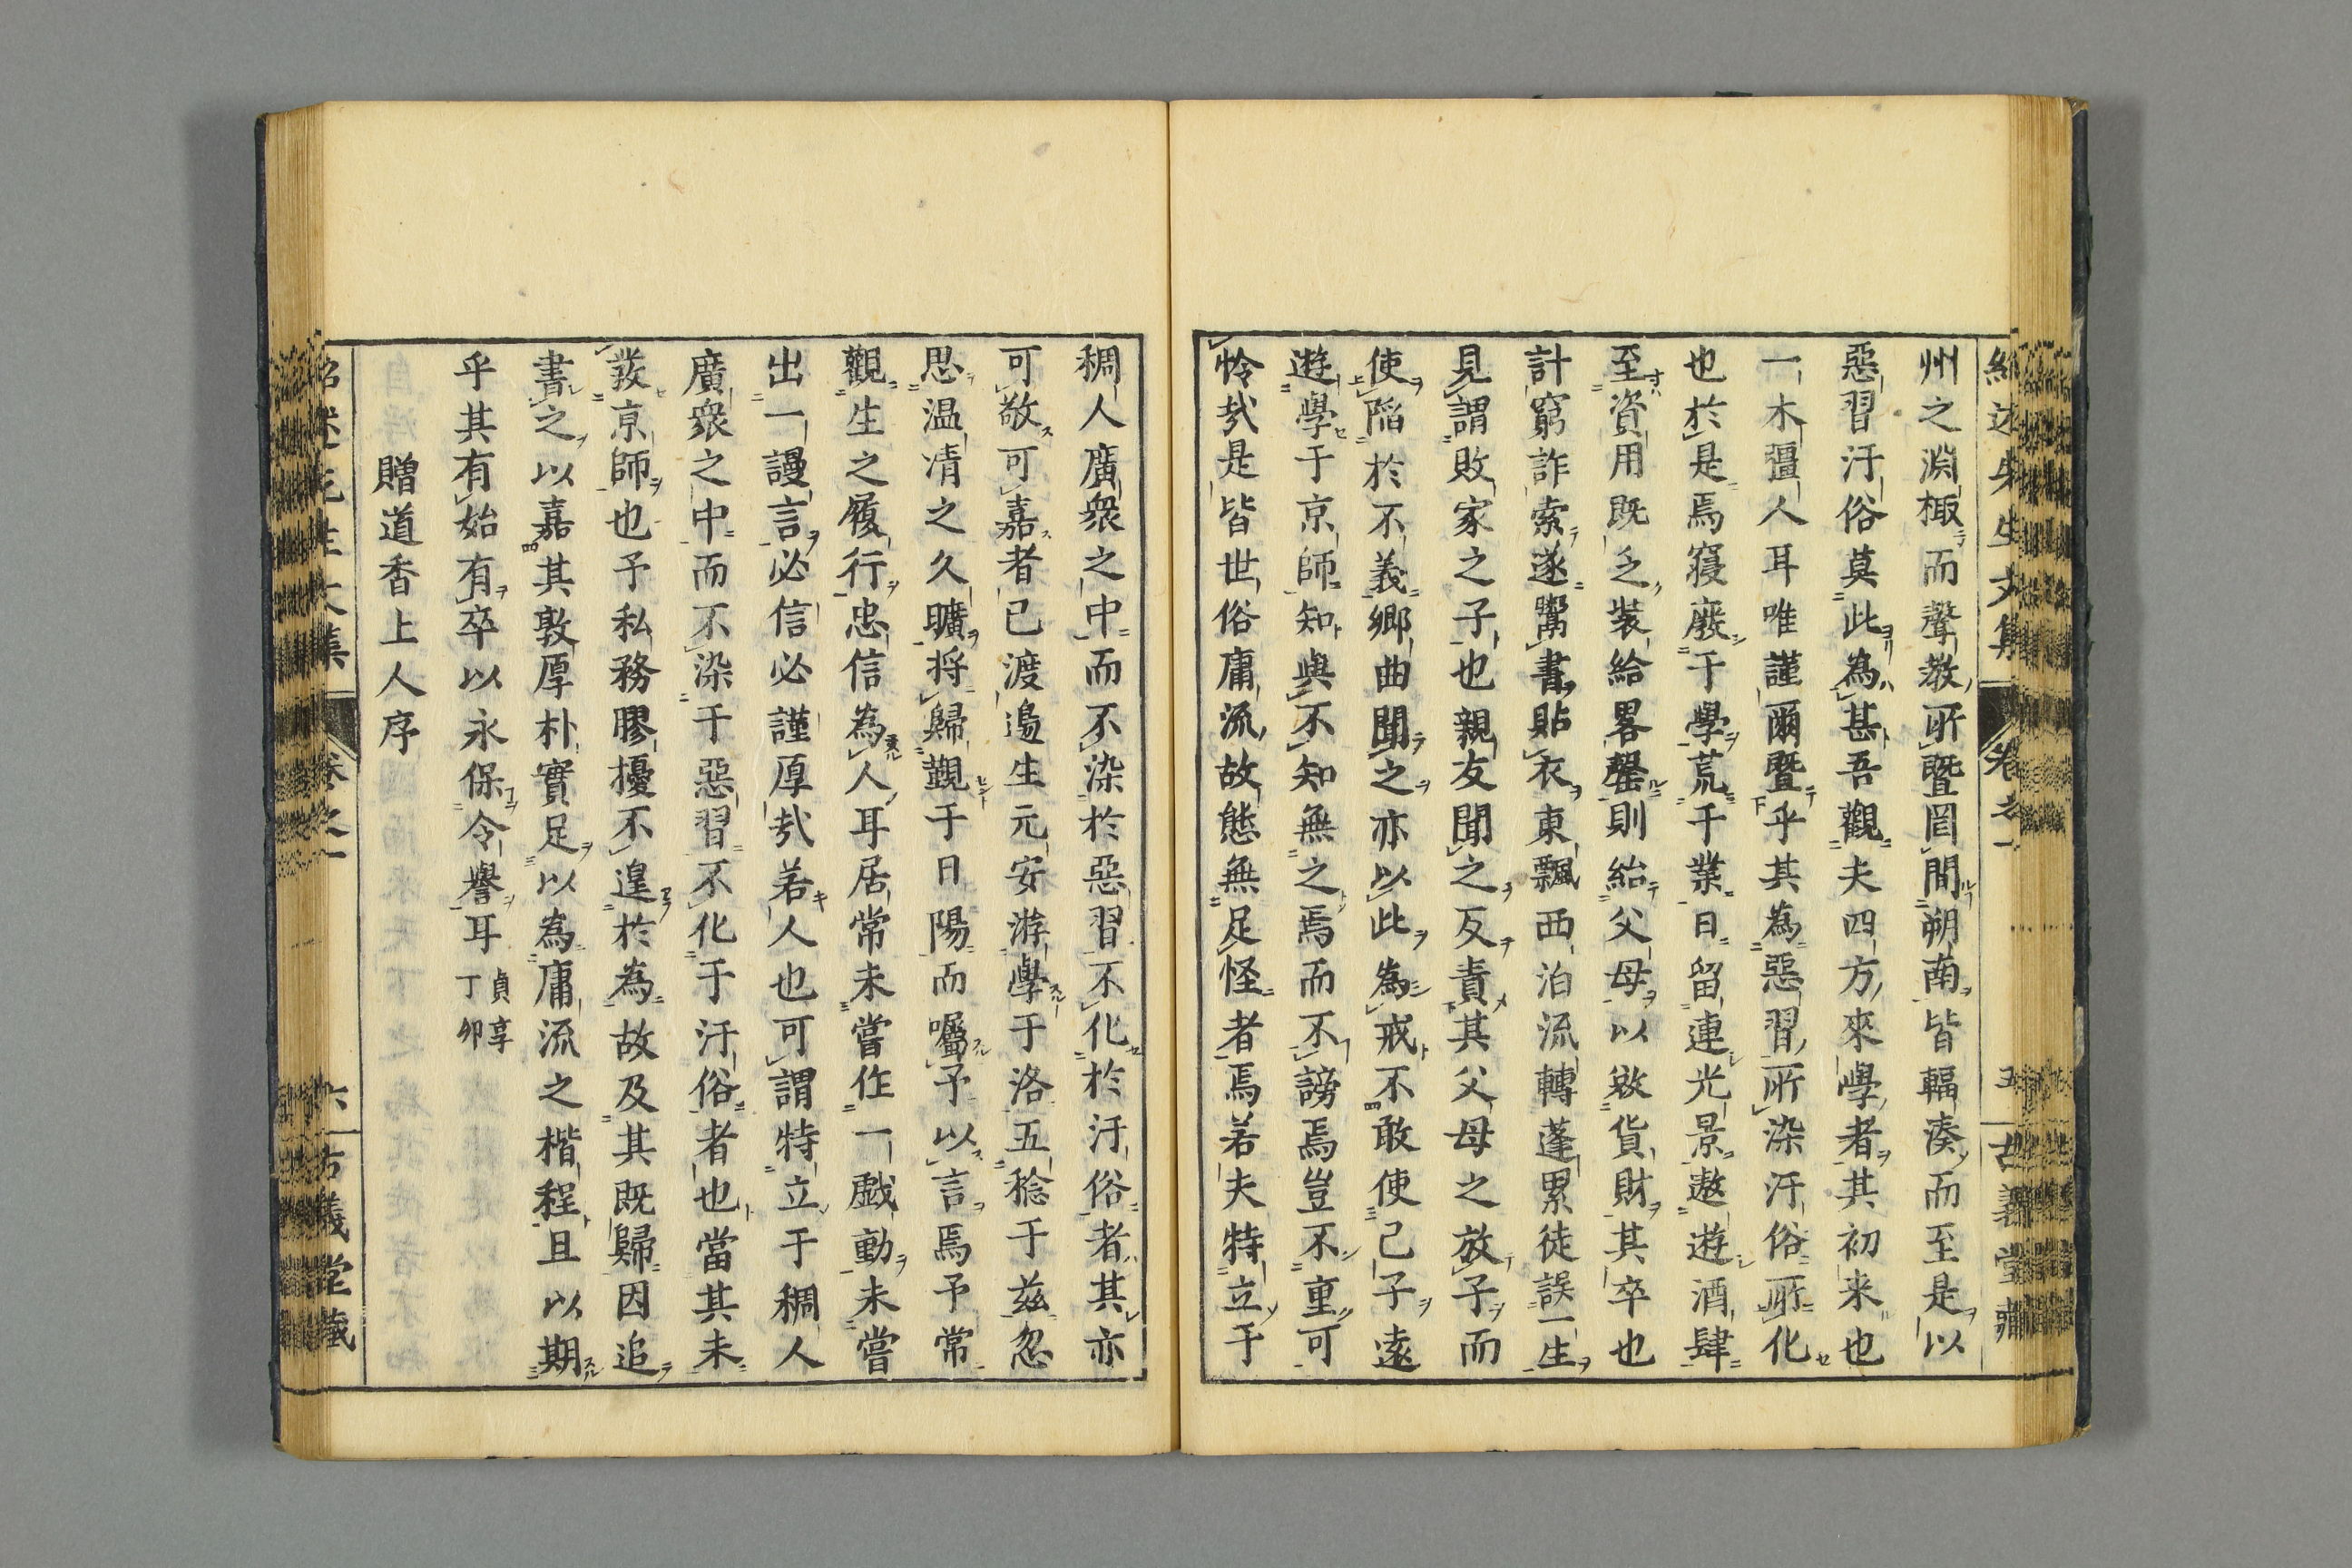 紹述先生文集 卷之一 五 古義堂藏
州之淵椒而聲教所暨罔間朔南皆輻湊而至是以
惡習汙俗莫此為甚吾觀夫四方來學者其初来也
一木彊人耳唯謹爾暨乎其為惡習所染汙俗所化
也於是焉寝廢于學荒于業日留連光景遨遊酒肆
至資用既乏装給畧罄則紿父母以啟貨財其卒也
計窮詐索遂鬻書貼衣東飄西泊流轉蓬累徒誤一生
見謂敗家之子也親友聞之反責其父母之放子而
使陥於不義郷曲聞之亦以此為戒不敢使己子遠
遊學于京師知與不知無之焉而不謗焉豈不重可
怜㢤是皆世俗庸流故態無足怪者焉若夫特立于
稠人廣衆之中而不染於惡習不化於汙俗者其亦
可敬可嘉者已渡邉生元安游學于洛五稔于茲忽
思温凊之久曠将歸覲于日陽而囑予以言焉予常
觀生之履行忠信為人耳居常未嘗作一戯動未嘗
出一謾言必信必謹厚㢤若人也可謂特立于稠人
廣衆之中而不染于惡習不化于汙俗者也當其未
發京師也予私務膠擾不遑於為故及其既歸因追
書之以嘉其敦厚朴實足以為庸流之楷程且以期
乎其有始有卒以永保令譽耳 貞享丁卯
贈道香上人序
紹述先生文集 卷之一 六 古義堂藏